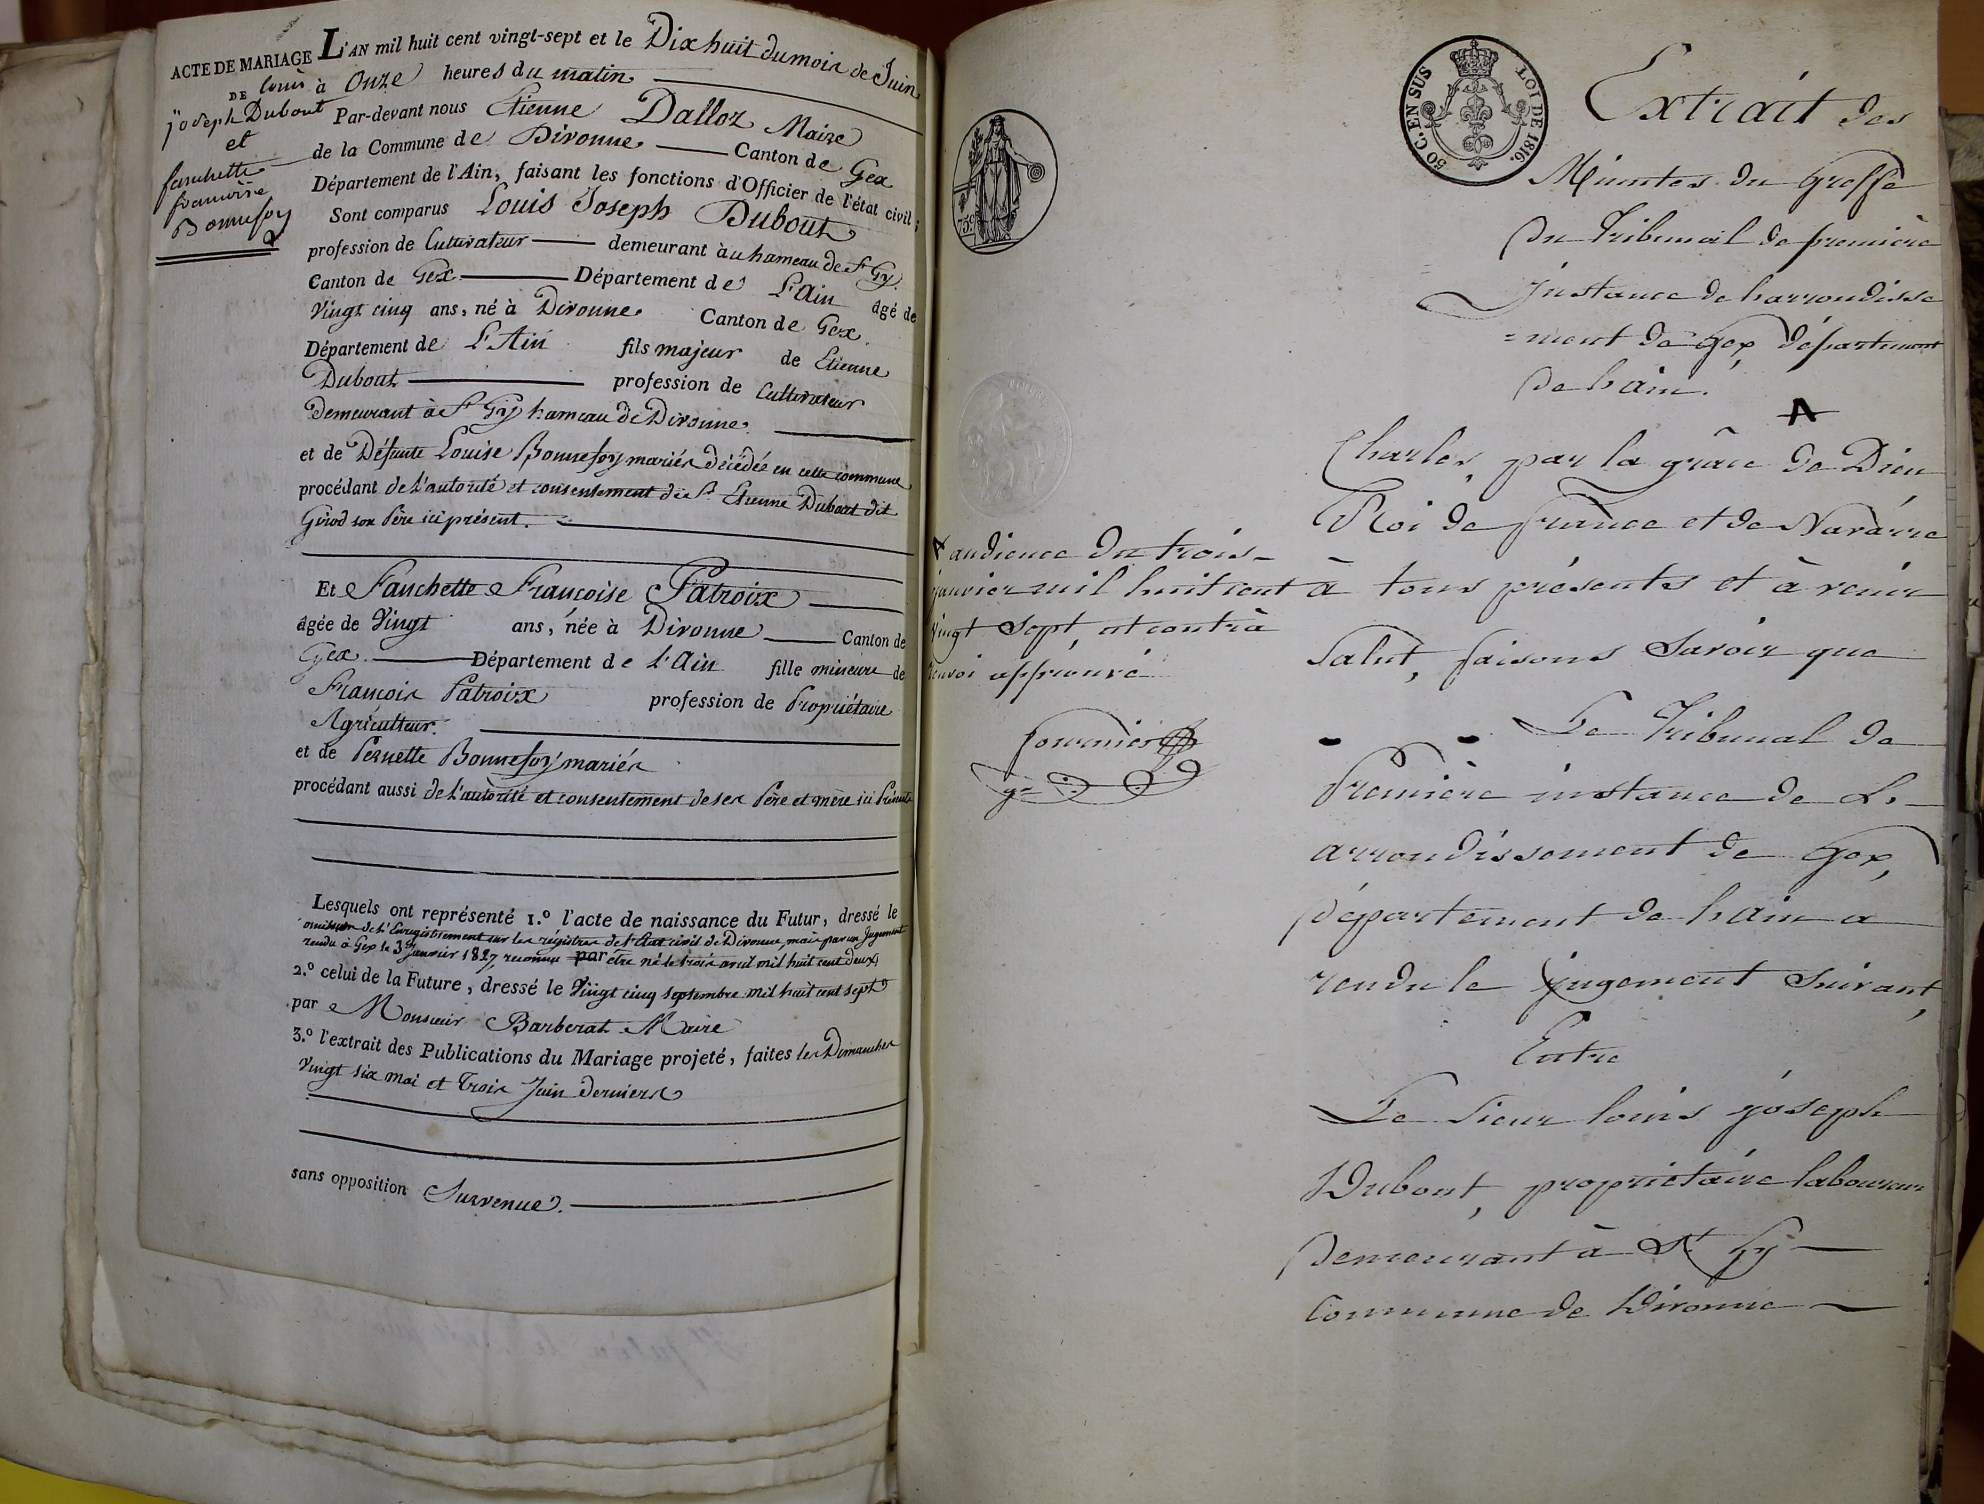 ACTE DE MARIAGE
DE Louis
Joseph Dubout
et
fanchette
francoise
Bonnefoy
L'AN mil huit cent vingt-sept et le Dix huit du mois de Juin
à Onze heures du matin
Par-devant nous Etienne Dalloz Maire
de la Commune de Divonne Canton de Gex
Département de l'Ain, faisant les fonctions d'Officier de l'état civil ;
Sont comparus Louis Joseph Dubout
profession de Cultivateur demeurant à u hameau de St Gy
Canton de Gex Département de L'Ain âgé de
Vingt cinq ans, né à Divonne Canton de Gex
Département de L'Ain fils majeur de Etienne
Dubout profession de Cultivateur
Demeurant à St Gy hameau de Divonne.
et de Défunte Louise Bonnefoy mariés décédée en cette commune
procédant de l'autorité et consentement du Sr Etienne Dubout dit
Girod son Père ici présent.
Et Fanchette Françoise Patroix
âgée de Vingt ans, née à Divonne Canton de
Gex Département de l'Ain fille mineure de
François Patroix profession de Propriétaire
Agriculteur.
et de Pernette Bonnefoy mariés
procédant aussi de l'autorité et consentement de ses Père et mère ici Présents
Lesquels ont représenté 1.º l'acte de naissance du Futur, dressé le
omission de l'Enregistrement sur les régistres de l'Etat civil de Divonne, mais par un Jugement
rendu à Gex le 3 Janvier 1827 reconnu par être né le trois avril mil huit cent deux
2.º celui de la Future, dressé le Vingt cinq septembre mil huit cent sept
par Monsieur Barberat Maire
3.º l'extrait des Publications du Mariage projeté, faites les Dimanches
Vingt six mai et Trois Juin derniers
sans opposition Survenue.
50 C. EN SUS
LOI DE 1816.
75 c
Extrait des
Minutes du Greffe
du Tribunal de première
Instance de larrondisse
=ment de Gex, département
de lain. A
Charles, par la grâce de Dieu
Roi de france et de Navarre
à tous présents et à venir
Salut, faisons Savoir que
Le Tribunal de
Première instance de L'
arrondissement de Gex,
département de lain a
rendu le jugement Suivant,
Entre
Le Sieur louis joseph
Dubout, propriétaire laboureur
demeurant à St Gy
Commune de Divonne
A audience du trois
janvier mil huit cent
Vingt Sept,
renvoi approuvé
fournier
gr